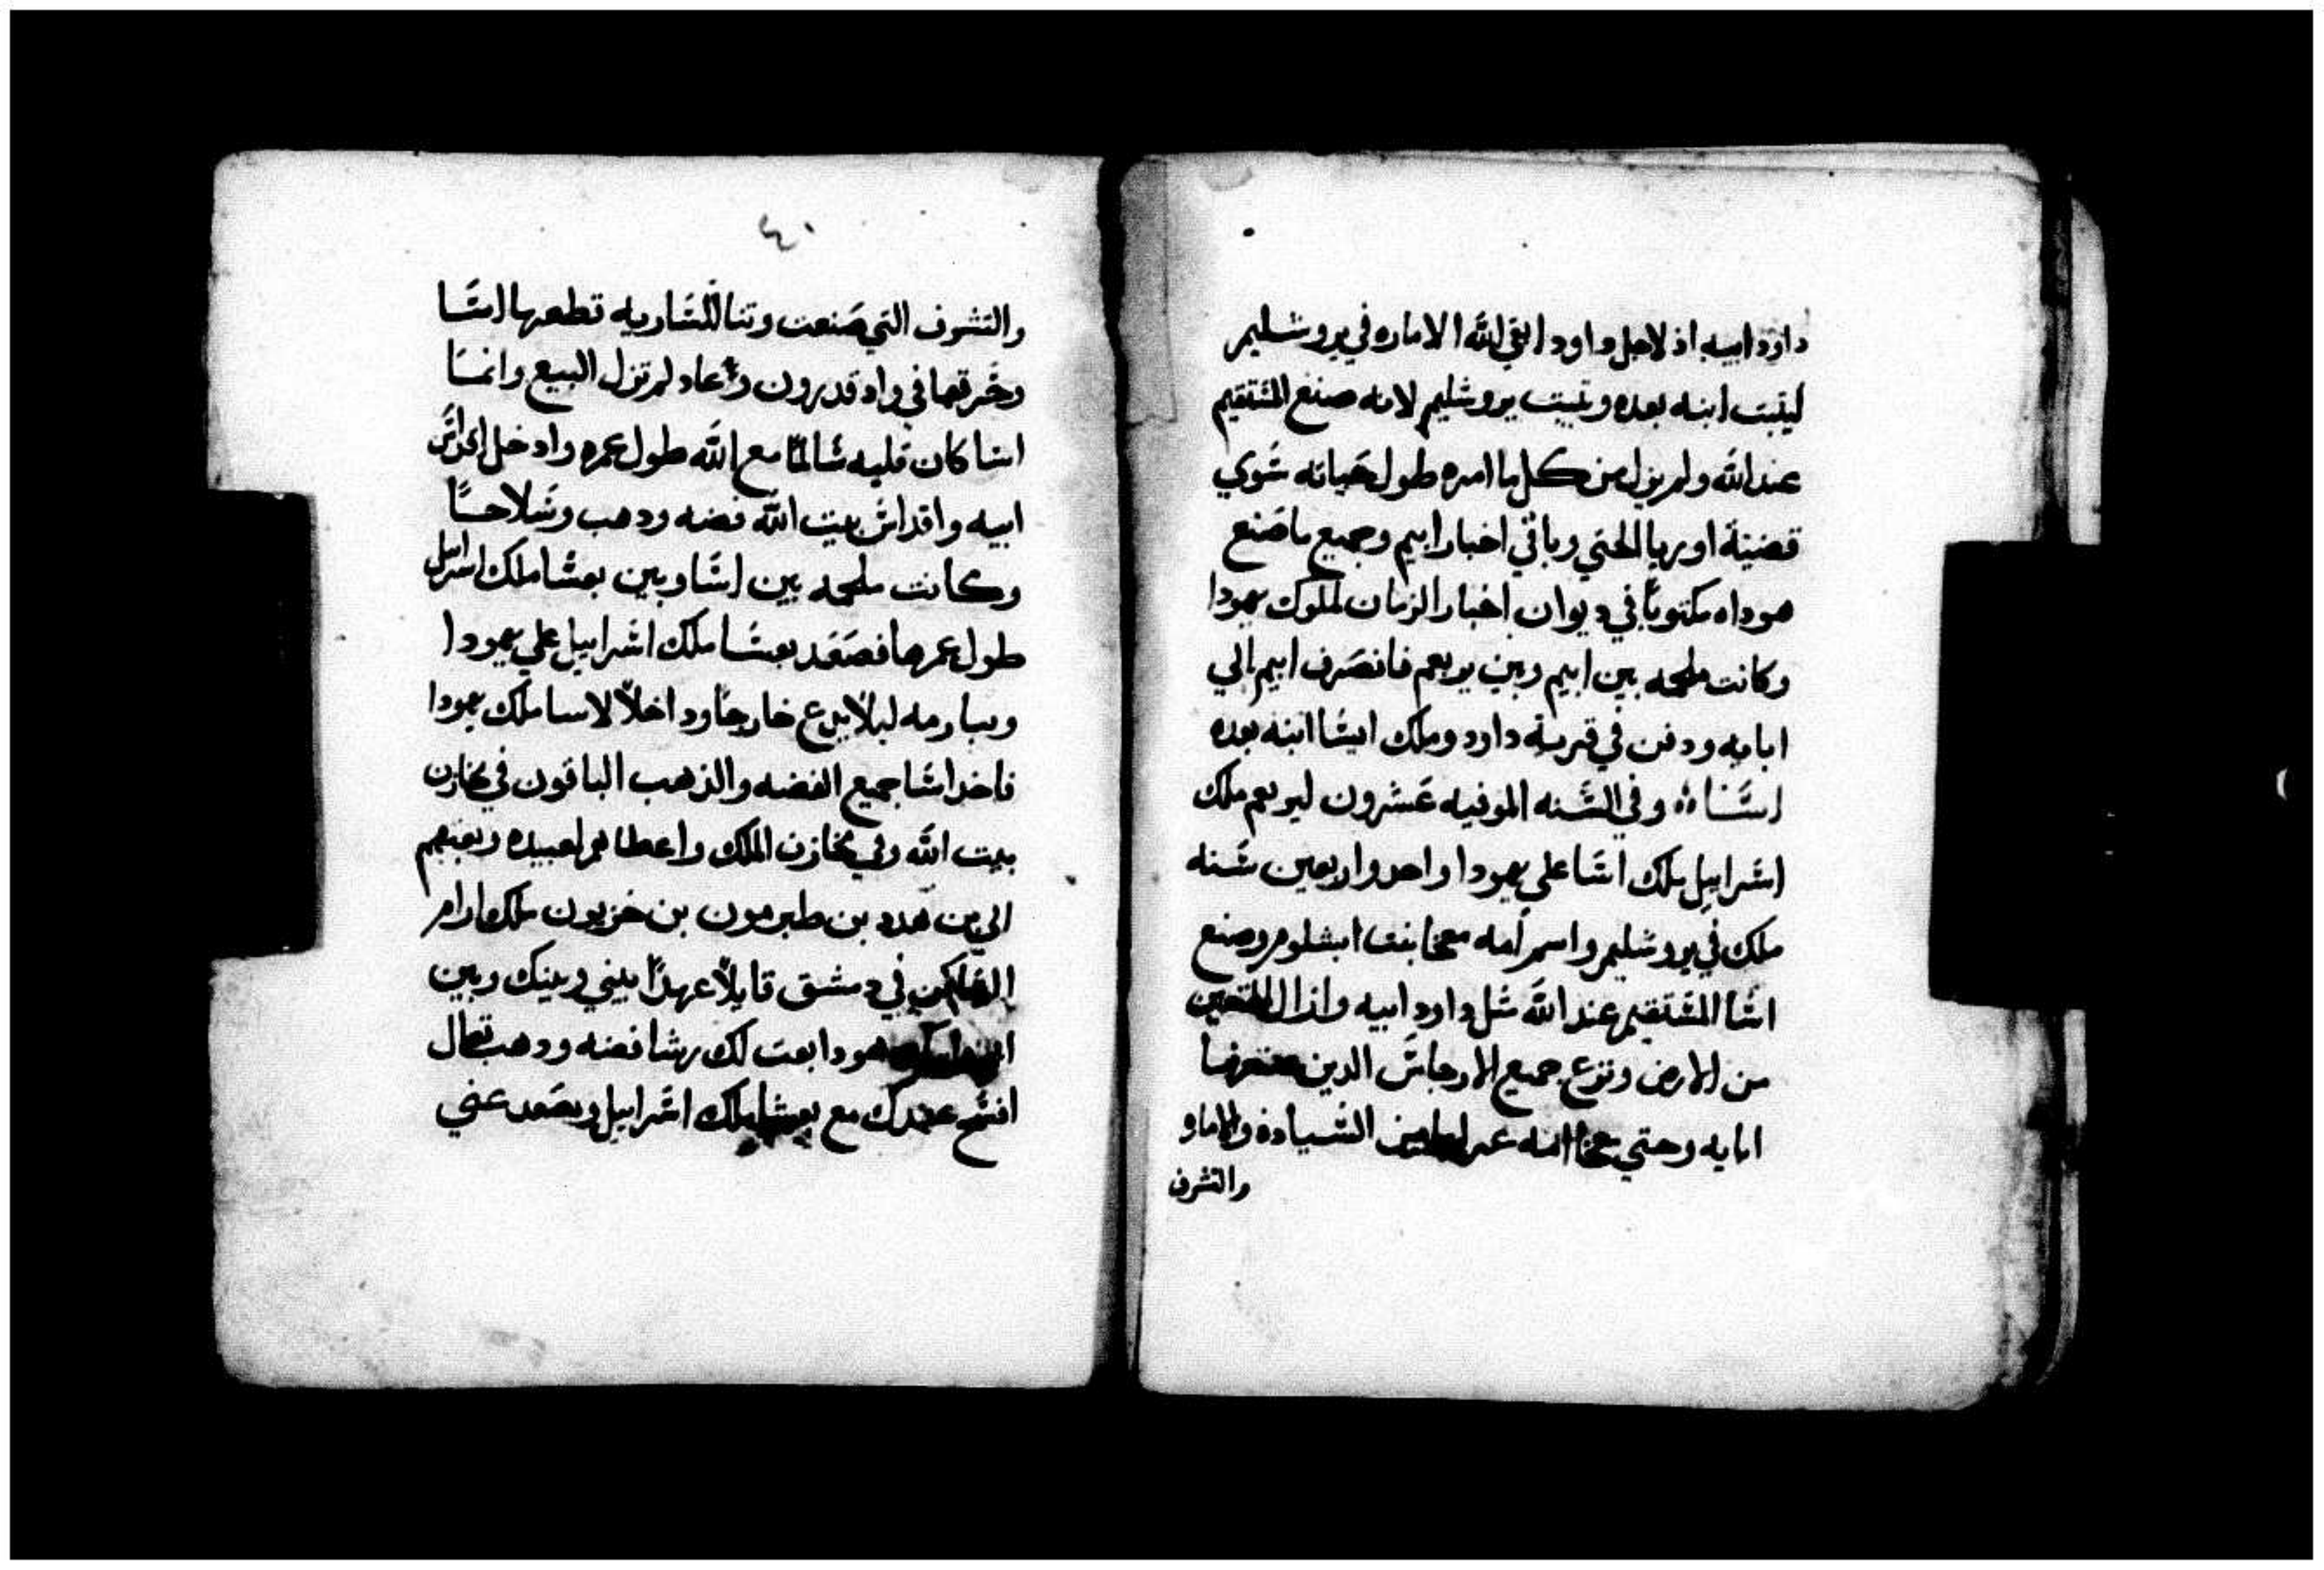 داود ابيه اذ لاجل داود ابقي الله الاماره في يروشليم
ليثبت ابنه بعده وتثبيت يروشليم لانه صنع المستقيم
عند الله ولم يزل من كل ما امره طول حياته سوي
قضية اوريا الحتي وباقي اخبار ابيم وجميع ما صنع
هوداه مكتوبًا في ديوان اخبار الزمان لملوك يهودا
وكانت ملحمه بين ابيم وبين يربعم فانصرف ابيم الي
ابايه ودفن في قرية داود وملك ايسا ابنه بعده
وفي السنه الموفيه عشرون ليربعم ملك
اسراييل ملك اسا علي يهودا واحد واربعين سنه
ملك في يروشليم واسم امه معخا بنت ابشلوم وصنع
اسا المستقيم عند الله مثل داود ابيه وازال
من الارض ونزع جميع الارجاس الدين
ابايه وحتي امه من السيادة
والتشرف
٤٠
والتشرف التي صنعت وثنا للساريه قطعها اسا
وحرقها في واد قدرون لم تزل البيع وانما
اسا كان قلبه سالمًا مع الله طول عمره وادخل اقداس
ابيه واقداس بيت الله فضه ودهب وسلاحًا
وكانت ملحمه بين اسا وبين بعشا ملك اسراييل
طول عمرها فصعد بعشا ملك اسراييل علي يهودا
لا يدع خارجًا وداخلاً لاسا ملك يهودا
فاخد اسا جميع الفضه والذهب الباقون في مخازن
بيت الله وفي مخازن الملك واعطاهم لعبيده وبعثهم
الي بن هدد بن طبرمون بن حزيون ملك ارام
الساكن في دمشق قايلاً عهدًا بيني وبينك وبين
هودا بعت لك رشا فضه ودهب تعال
افسخ عهدك مع بعشا ملك اسراييل ويصعد عني